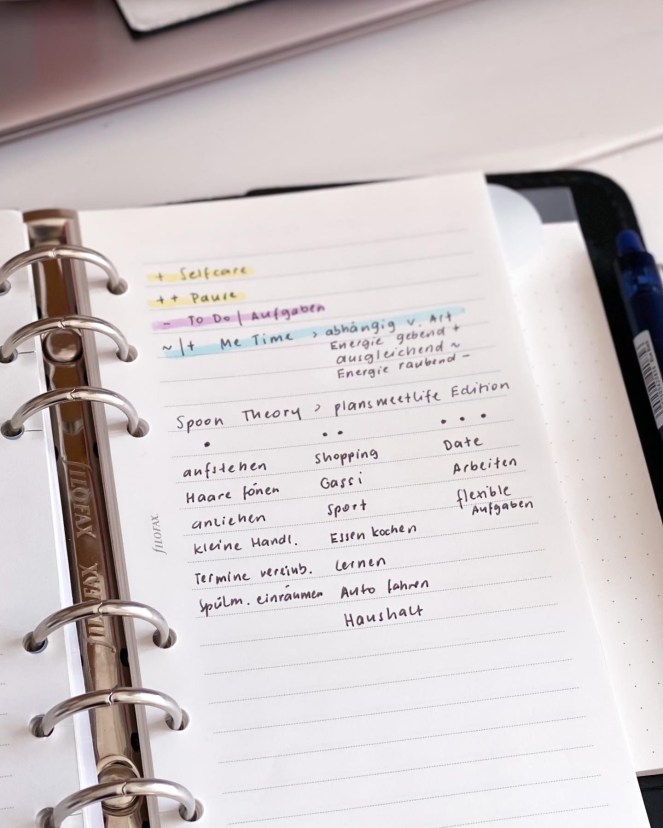 + Selfcare
++ Pause
- To Do | Aufgaben
~|+ Me Time > abhängig v. Art
Energie gebend +
ausgleichend ~
Energie raubend -
Spoon Theory > plansmeetlife Edition
• •• •••
aufstehen Shopping Date
Haare fönen Gassi Arbeiten
anziehen Sport flexible
Aufgaben
kleine Handl. Essen kochen
Termine vereinb. Lernen
Spülm. einräumen Auto fahren
Haushalt
FILOFAX
FILOFAX